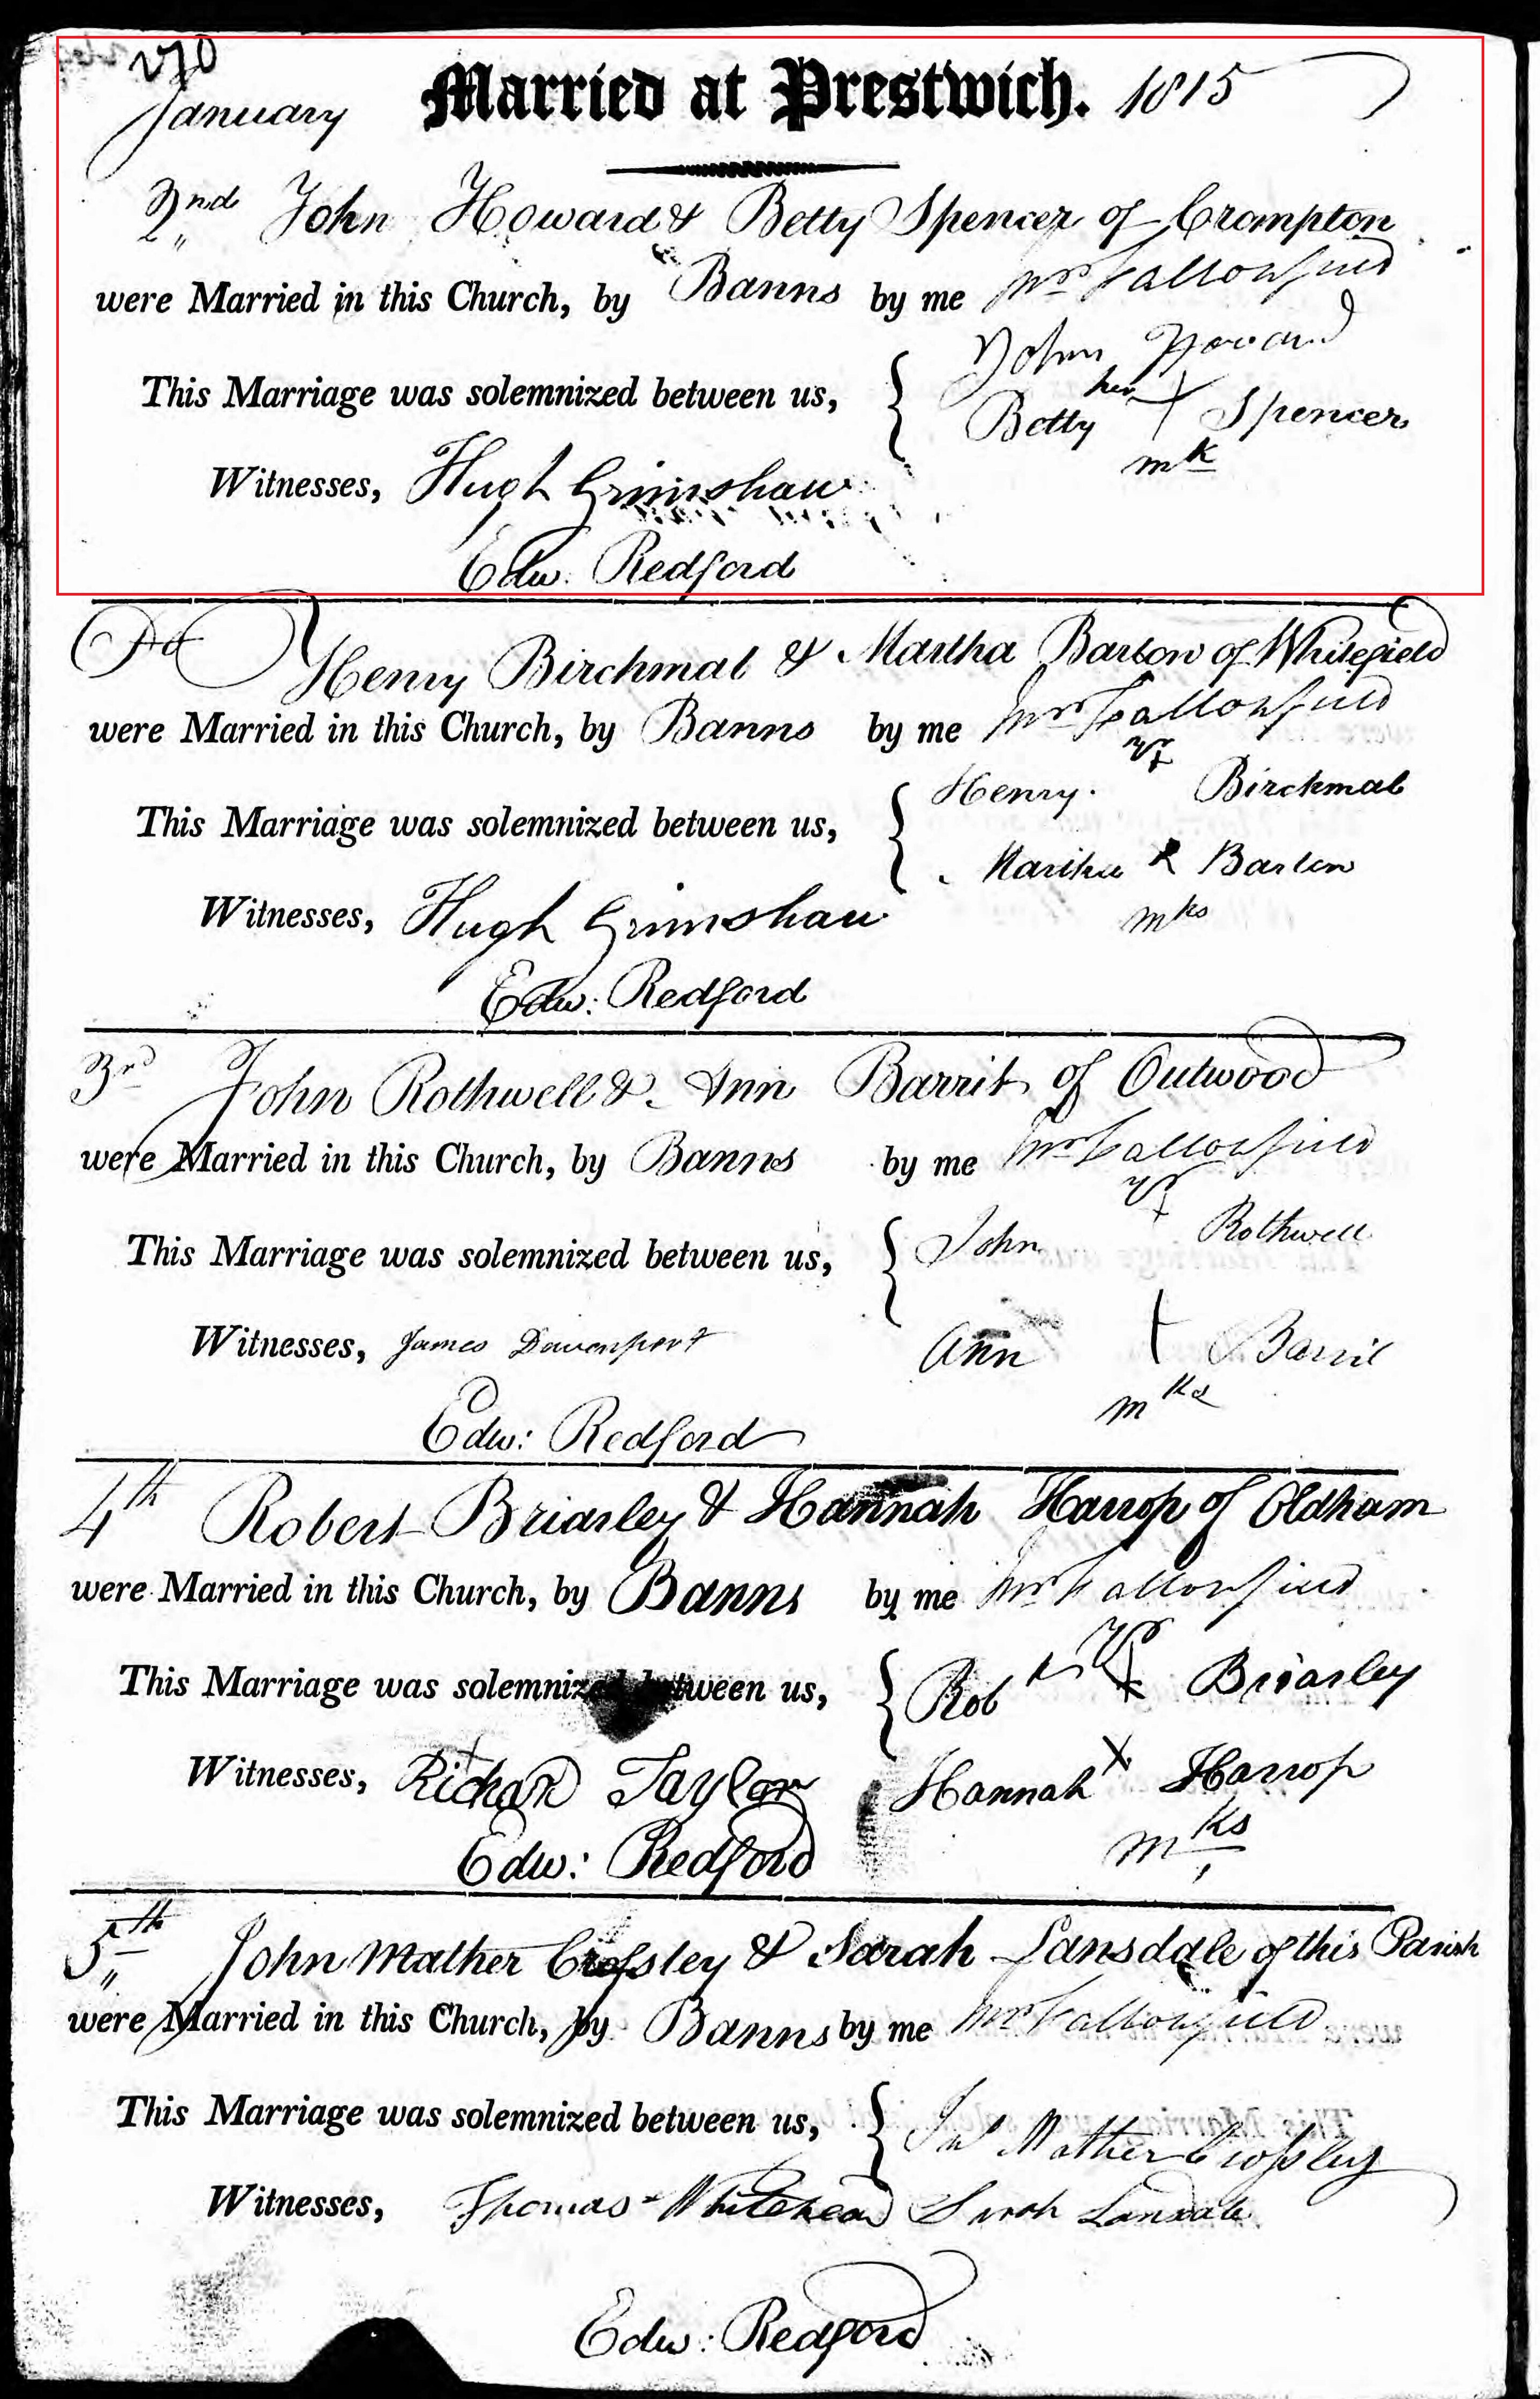 270
January Married at Prestwich. 1815
2nd John Howard & Betty Spencer of Crompton
were Married in this Church, by Banns by me Wm Fallowfield
John Howard
This Marriage was solemnized between us, { her
Betty X Spencer
mk
Witnesses, Hugh Grimshaw
Edw: Redford
Do Henry Birchmal & Martha Barlow of Whitefield
were Married in this Church, by Banns by me Wm Fallowfield
Henry Birchmal
This Marriage was solemnized between us, {
Martha Barlow
mks
Witnesses, Hugh Grimshaw
Edw: Redford
3rd John Rothwell & Ann Barrit of Outwood
were Married in this Church, by Banns by me Wm Fallowfield
This Marriage was solemnized between us, { John Rothwell
Witnesses, James Davenport Ann + Barrit
mks
Edw: Redford
4th Robert Briarley & Hannah Harrop of Oldham
were Married in this Church, by Banns by me Wm Fallowfield
This Marriage was solemnized between us, { Robt Briarley
Witnesses, Richard Taylor Hannah X Harrop
mks
Edw: Redford
5th John Mather Crofsley & Sarah Lansdale of this Parish
were Married in this Church, by Banns by me Wm Fallowfield
This Marriage was solemnized between us, { Jno Mather Crofsley
Witnesses, Thomas Whitehead Sarah Lansdale
Edw: Redford